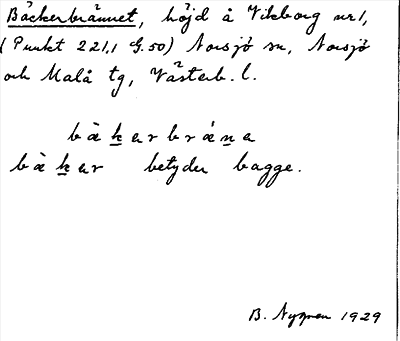 Bäckerbrännet, höjd å Vikborg nr 1,
(Punkt 221,1 G.50) Norsjö sn, Norsjö
och Malå tg, Västerb. l.
bàkerbrána
bàker betyder bagge.
B. Nygren 1929